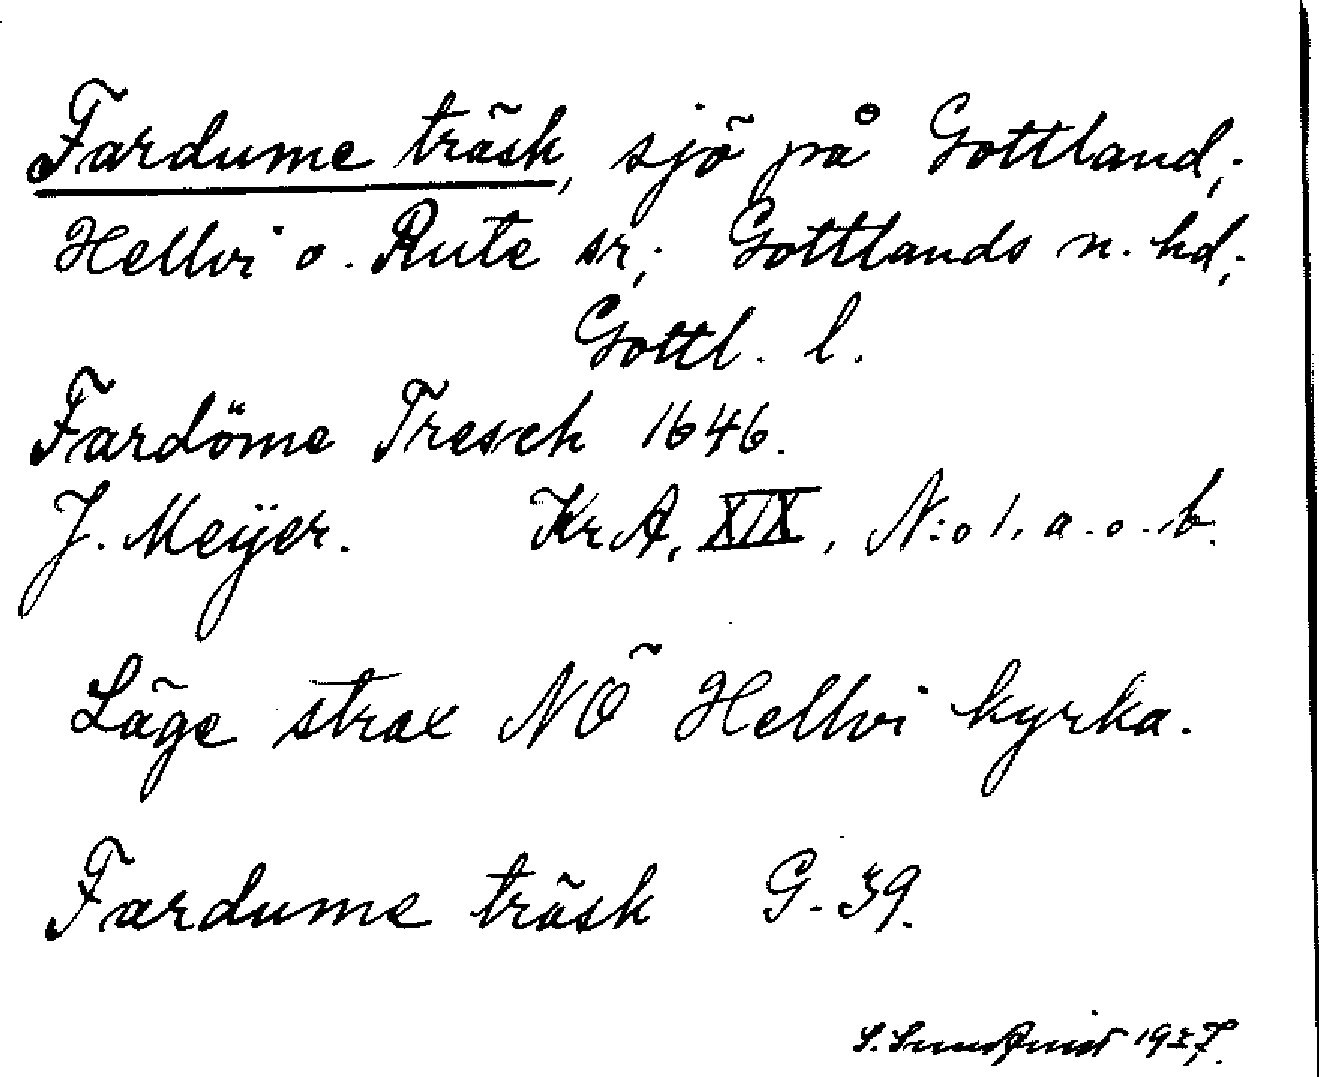 Fardume träsk, sjö på Gottland;
Hellvi o. Rute sr; Gottlands n. hd;
Gottl. l.
Fardöme Tresch 1646.
J. Meÿer. KrA, XIX, N:o 1. a. o. b.
Läge strax NÖ Hellvi kyrka.
Fardume träsk G. 39.
S. Sundqvist 1937.